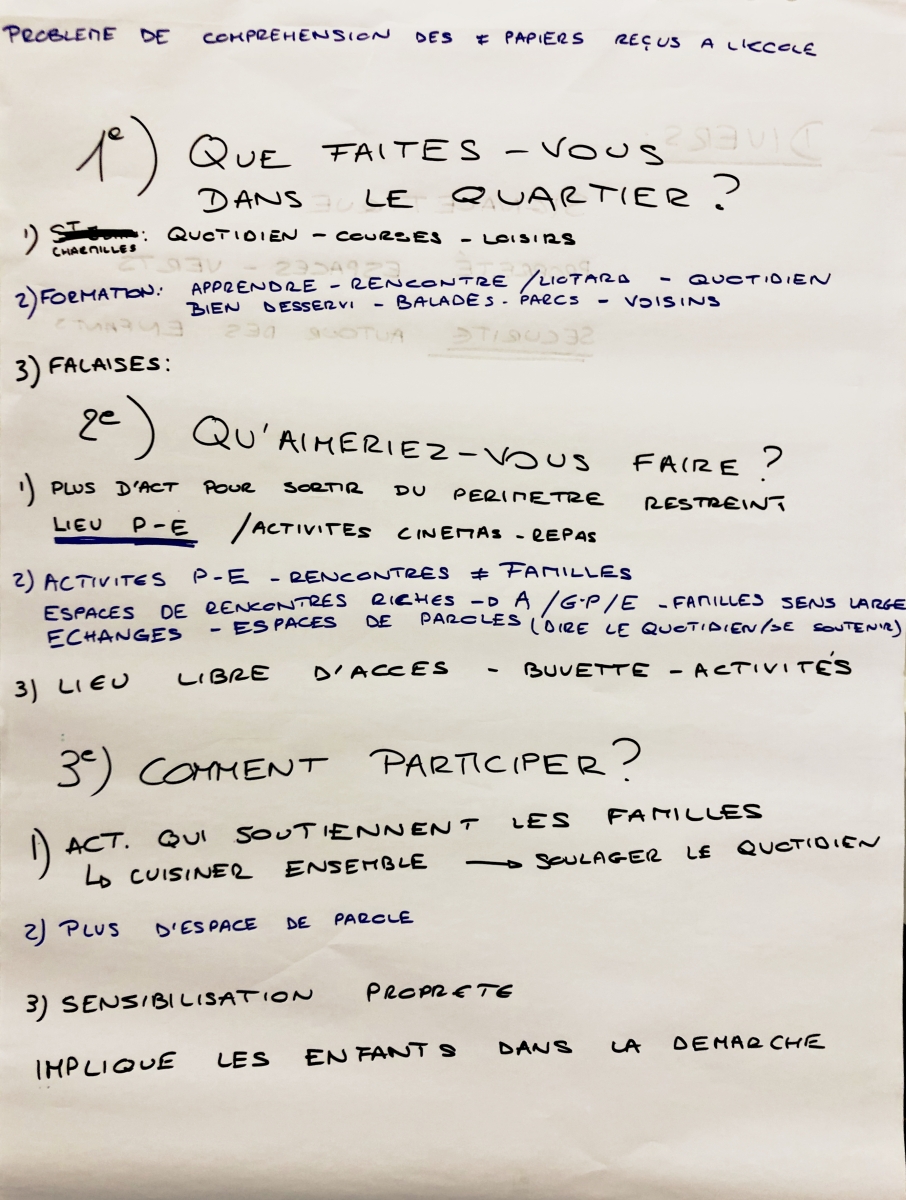 PROBLEME DE COMPREHENSION DES ≠ PAPIERS REÇUS A L'ECOLE
1e) QUE FAITES-VOUS
DANS LE QUARTIER ?
1) : QUOTIDIEN - COURSES - LOISIRS
CHARMILLES
2) FORMATION : APPRENDRE - RENCONTRE / LIOTARD - QUOTIDIEN
BIEN DESSERVI - BALADES - PARCS - VOISINS
3) FALAISES :
2e) QU'AIMERIEZ-VOUS FAIRE ?
1) PLUS D'ACT POUR SORTIR DU PERIMETRE RESTREINT
LIEU P-E / ACTIVITES CINEMAS - REPAS
2) ACTIVITES P-E - RENCONTRES ≠ FAMILLES
ESPACES DE RENCONTRES RICHES → A / G-P / E - FAMILLES SENS LARGE
ECHANGES - ESPACES DE PAROLES (DIRE LE QUOTIDIEN / SE SOUTENIR)
3) LIEU LIBRE D'ACCES - BUVETTE - ACTIVITÉS
3e) COMMENT PARTICIPER ?
1) ACT. QUI SOUTIENNENT LES FAMILLES
↳ CUISINER ENSEMBLE → SOULAGER LE QUOTIDIEN
2) PLUS D'ESPACE DE PAROLE
3) SENSIBILISATION PROPRETE
IMPLIQUE LES ENFANTS DANS LA DEMARCHE
DIVERS :
PROPRETÉ ESPACES - VERTS
SECURITE AUTOUR DES ENFANTS